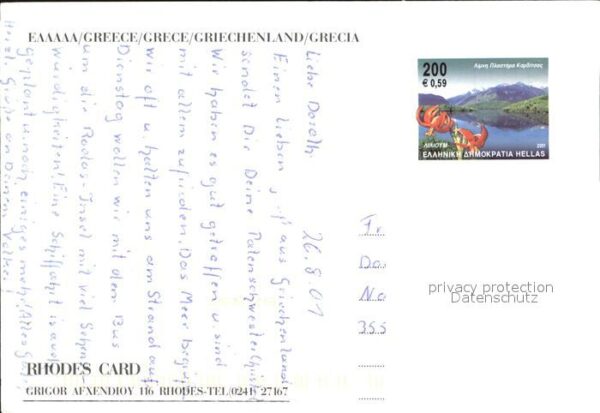 ΕΛΛΑΔΑ/GREECE/GRECE/GRIECHENLAND/GRECIA
Λίμνη Πλαστήρα Καρδίτσας
200
€ 0,59
ΛΙΛΙΟΥΜ 2001
ΕΛΛΗΝΙΚΗ ΔΗΜΟΚΡΑΤΙA HELLAS
26.8.01
Liebe Doroth
Einen lieben aus Griechenland
sendet Dir Deine Patenschwester
Wir haben es gut getroffen u. sind
mit allem zufrieden. Das Meer
wir oft u. halten uns am Strand auf
Dienstag wollen wir mit dem Bus
um die Rodos-Insel mit viel Sehens-
würdigkeiten! Eine Schiffahrt ist auch
geplant u. noch einiges mehr! Alles
Herzl. Grüße an Deinen
Fr
Do
Na
355
privacy protection
Datenschutz
RHODES CARD
GRIGOR AFXENDIOU 116 RHODES-TEL/0241 27167